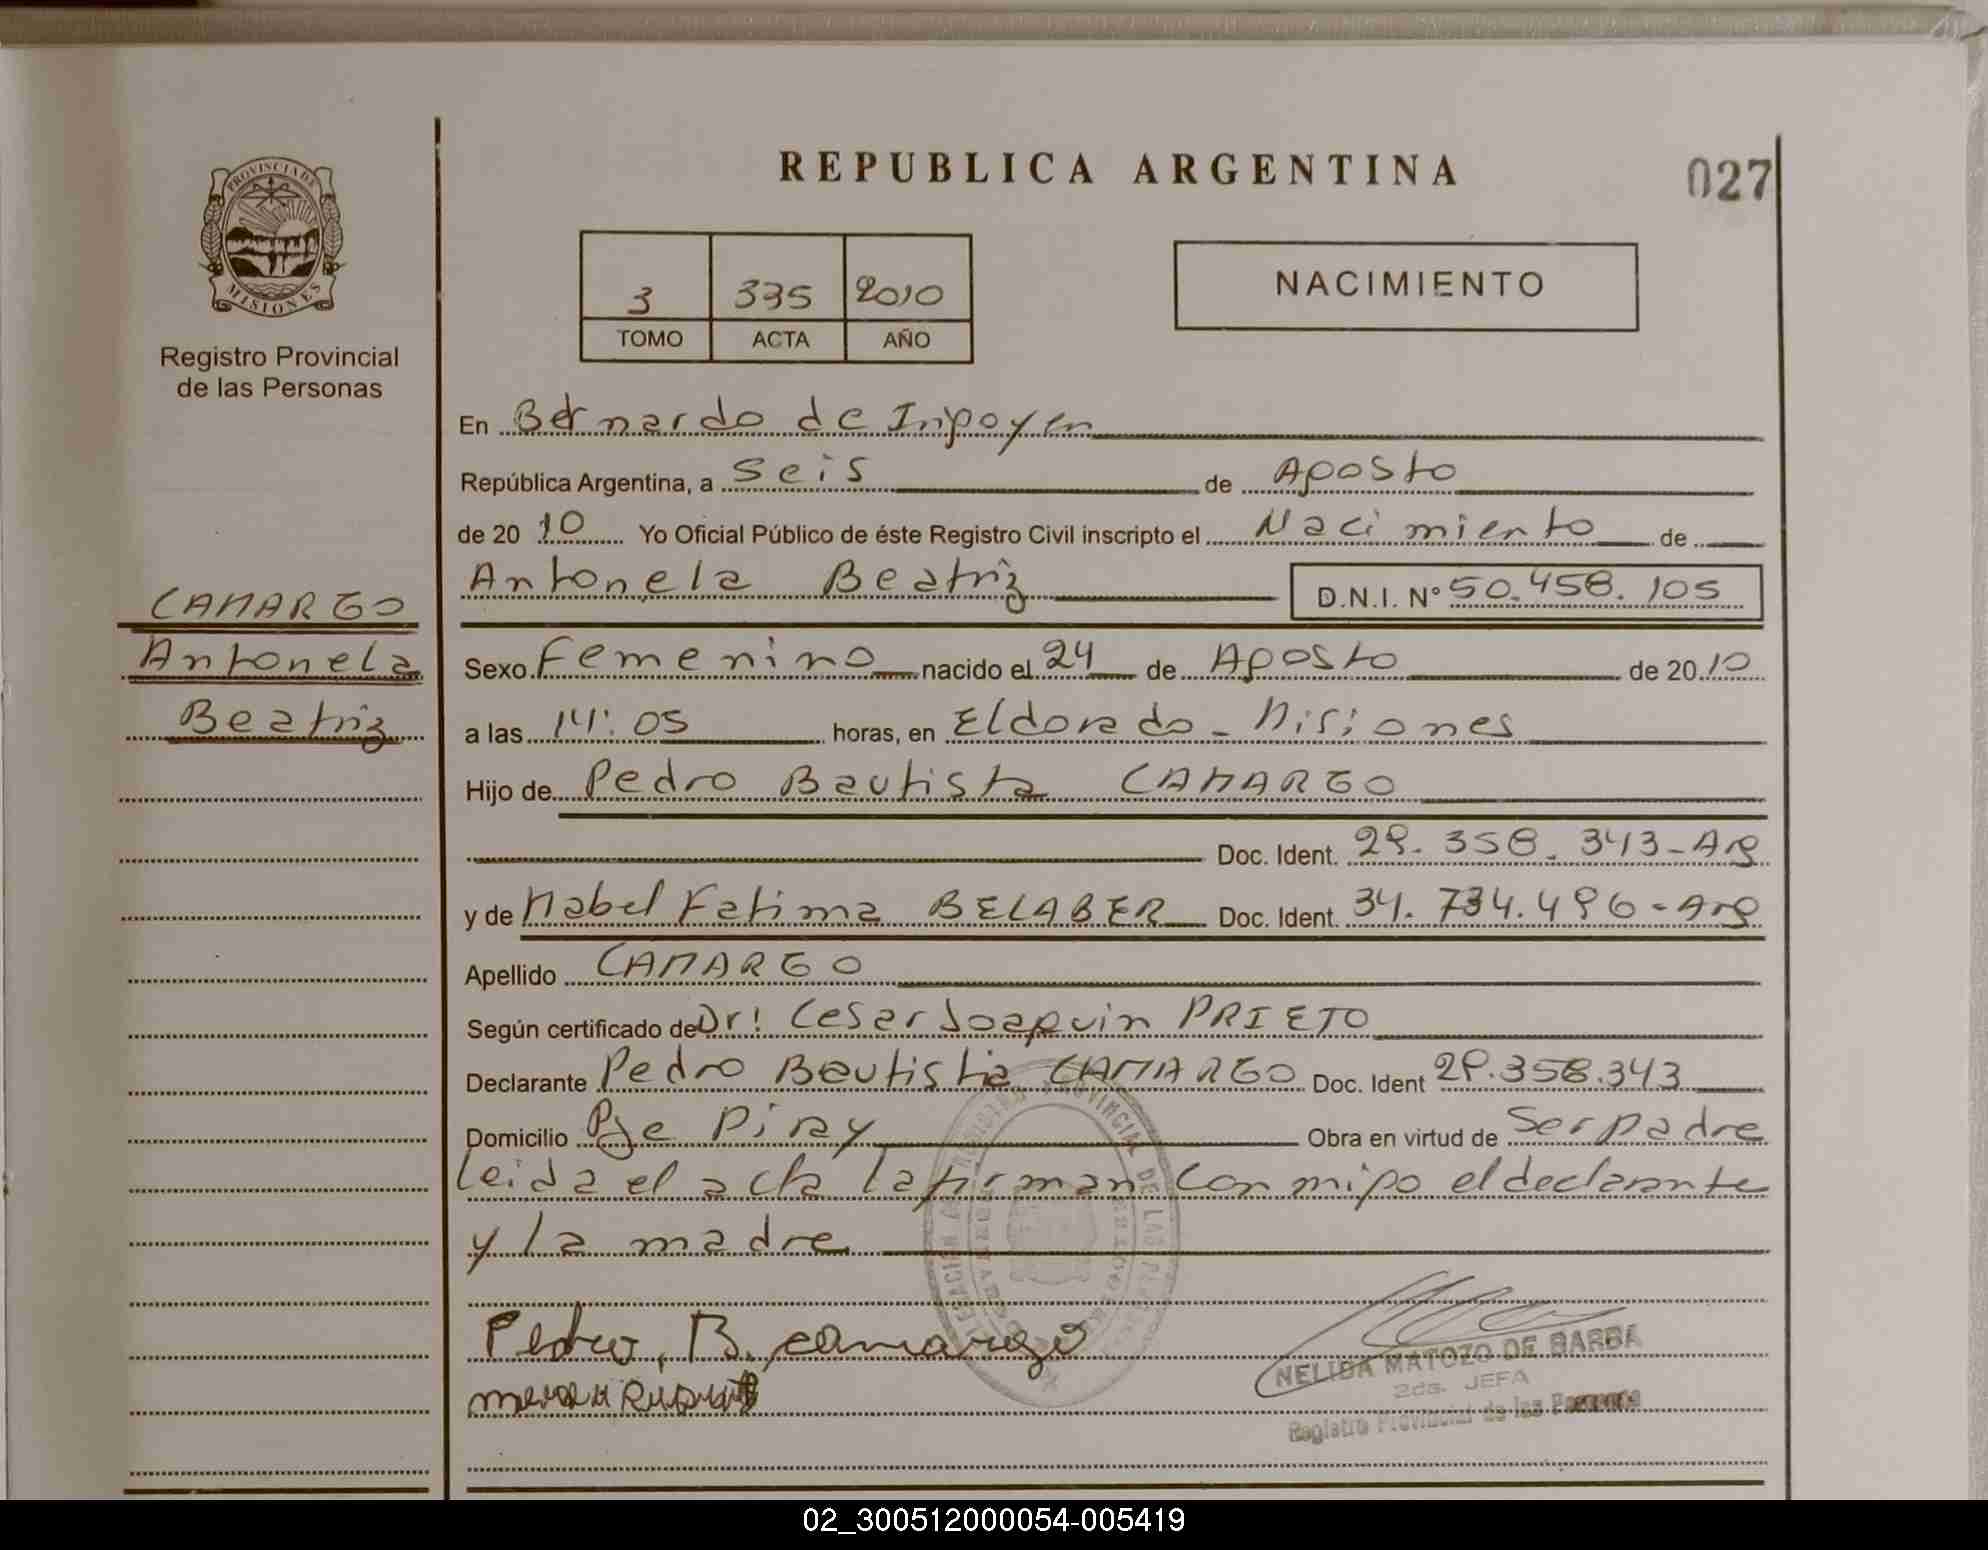 REPUBLICA ARGENTINA
027
PROVINCIA DE
MISIONES
Registro Provincial
de las Personas
3 335 2010
TOMO ACTA AÑO
NACIMIENTO
En Bernardo de Irigoyen
República Argentina, a Seis de Agosto
de 20 10 Yo Oficial Público de éste Registro Civil inscripto el Nacimiento de
Antonela Beatriz D.N.I. N° 50.458.105
CAMARGO
Antonela
Beatriz
Sexo Femenino nacido el 24 de Agosto de 20 10
a las 14:05 horas, en Eldorado - Misiones
Hijo de Pedro Bautista CAMARGO
Doc. Ident. 29.358.343-Arg
y de Mabel Fatima BELABER Doc. Ident. 34.734.496-Arg
Apellido CAMARGO
Según certificado de Dr! Cesar Joaquin PRIETO
Declarante Pedro Bautista CAMARGO Doc. Ident 29.358.343
Domicilio Pje Piray Obra en virtud de Ser padre
Leida el acta la firman con migo el declarante
y la madre
Pedro, B. camargo
NELIDA MATOZO DE BARBA
2da. JEFA
Registro Provincial de las Personas
02_300512000054-005419